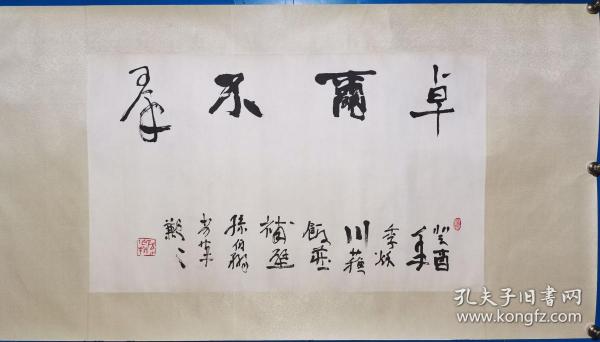 卓爾不群
癸酉
年
季秋
川蘇
飯莊
補壁
孫伯翔
書草
孔夫子旧书网
www.kongfz.com